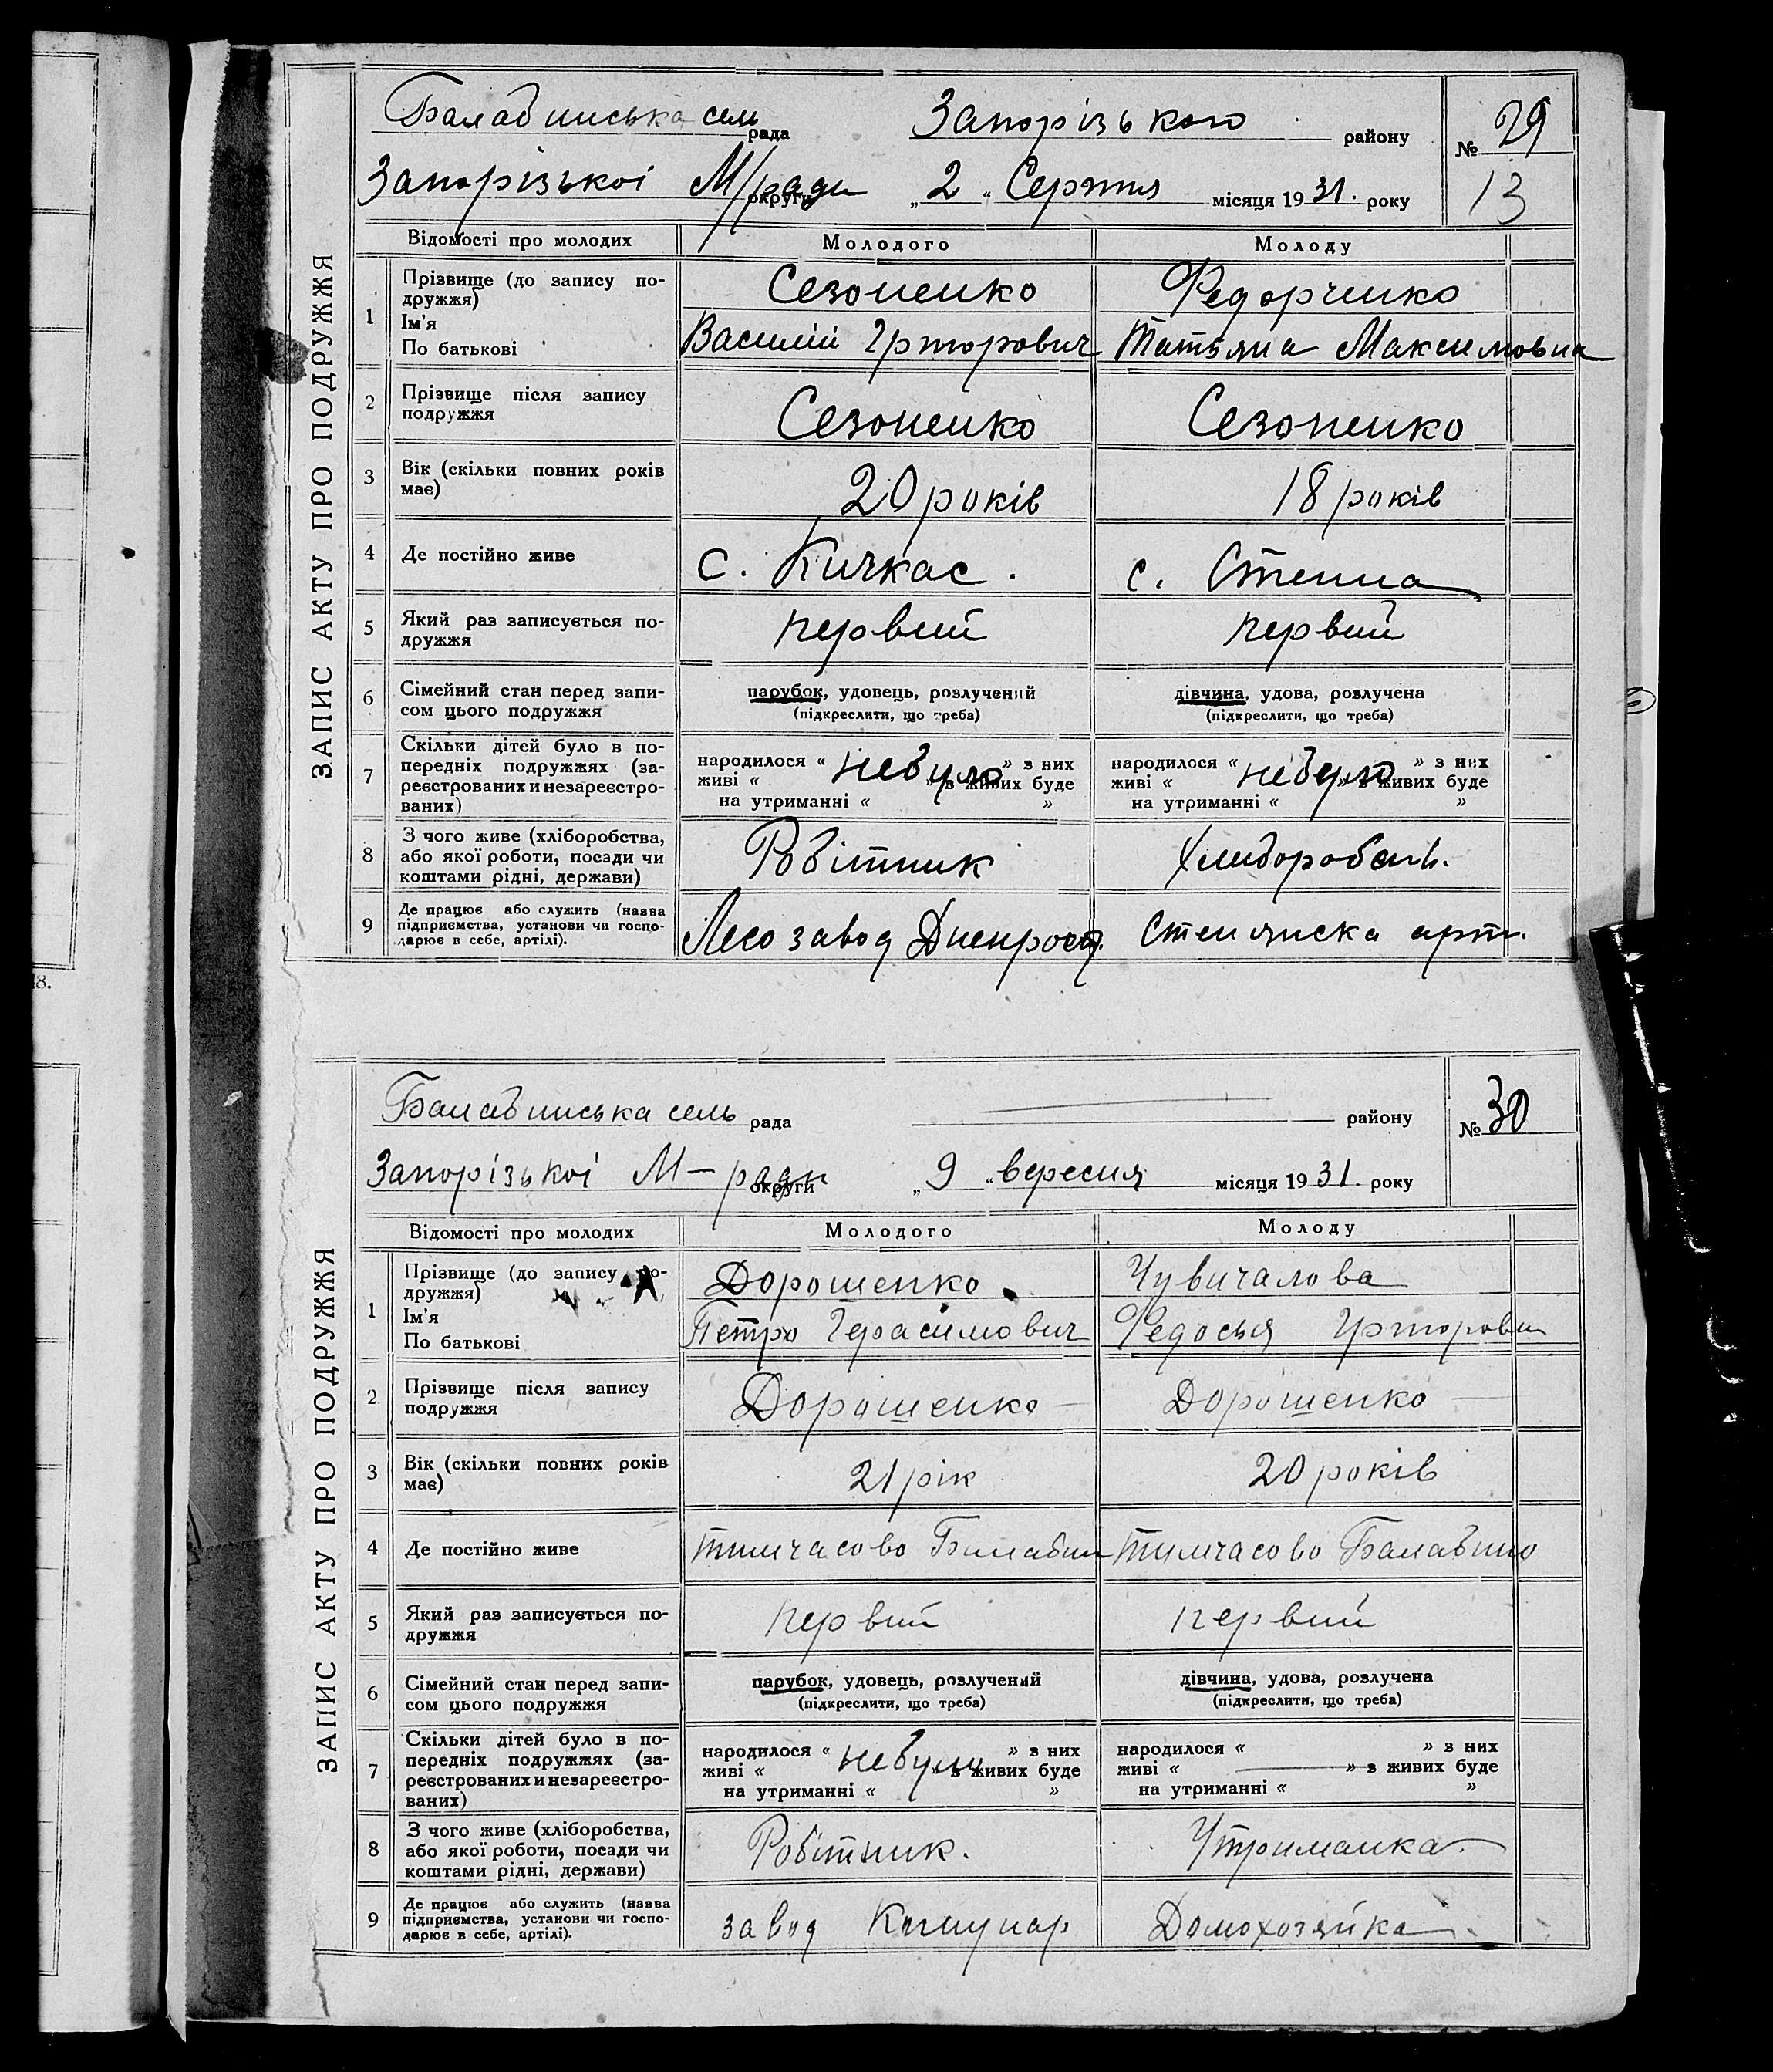 ЗАПИС АКТУ ПРО ПОДРУЖЖЯ
Балабинська сель рада Запорізького району № 29
Запорізької М/ради округи „ 2 “ Серпня місяця 19 31. року 13
Відомості про молодих Молодого Молоду
1 Прізвище (до запису по-
дружжя) Сезоненко Федорченко
Ім'я
По батькові Василій Григорович Татьяна Максимовна
2 Прізвище після запису
подружжя Сезоненко Сезоненко
3 Вік (скільки повних років
має) 20 років 18 років
4 Де постійно живе с. Кичкас. с. Степна
5 Який раз записується по-
дружжя первий первий
6 Сімейний стан перед запи-
сом цього подружжя
парубок, удовець, розлучений
(підкреслити, що треба)
дівчина, удова, розлучена
(підкреслити, що треба)
7 Скільки дітей було в по-
передніх подружжях (за-
реєстрованих и незареєстро-
ваних)
народилося « небуло » з них
живі « » з живих буде
на утриманні « »
народилося « небуло » з них
живі « » з живих буде
на утриманні « »
8 З чого живе (хліборобства,
або якої роботи, посади чи
коштами рідні, держави) Робітник
9 Де працює або служить (назва
підприємства, установи чи госпо-
дарює в себе, артілі). Лесозавод Арт.
18.
ЗАПИС АКТУ ПРО ПОДРУЖЖЯ
Балабинська сель рада района району № 30
Запорізької М-ради округи „ 9 “ вересня місяця 19 31. року
Відомості про молодих Молодого Молоду
1 Прізвище (до запису по-
дружжя) Дорошенко Чувичалова
Ім'я
По батькові Петро Герасимович Федосья
2 Прізвище після запису
подружжя Дорошенко Дорошенко
3 Вік (скільки повних років
має) 21 рік 20 років
4 Де постійно живе тимчасово Балабин тимчасово Балабино
5 Який раз записується по-
дружжя первий первий
6 Сімейний стан перед запи-
сом цього подружжя
парубок, удовець, розлучений
(підкреслити, що треба)
дівчина, удова, розлучена
(підкреслити, що треба)
7 Скільки дітей було в по-
передніх подружжях (за-
реєстрованих и незареєстро-
ваних)
народилося « небуло » з них
живі « » з живих буде
на утриманні « »
народилося « » з них
живі « » з живих буде
на утриманні « »
8 З чого живе (хліборобства,
або якої роботи, посади чи
коштами рідні, держави) Робітник. Утриманка.
9 Де працює або служить (назва
підприємства, установи чи госпо-
дарює в себе, артілі). завод Комунар Домохозяйка